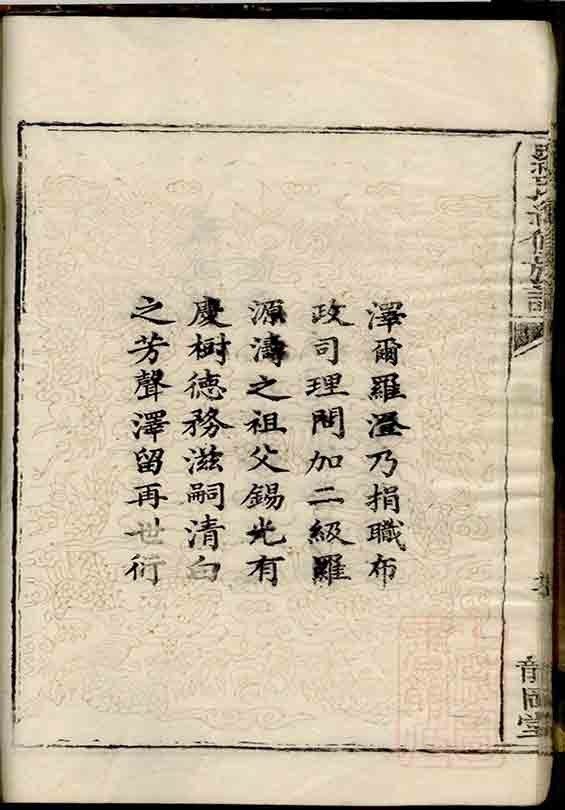 澤爾羅澄乃捐職布
政司理問加二級羅
源濤之祖父錫光有
慶樹德務滋嗣清白
之芳聲澤留再世衍
羅氏續修族譜